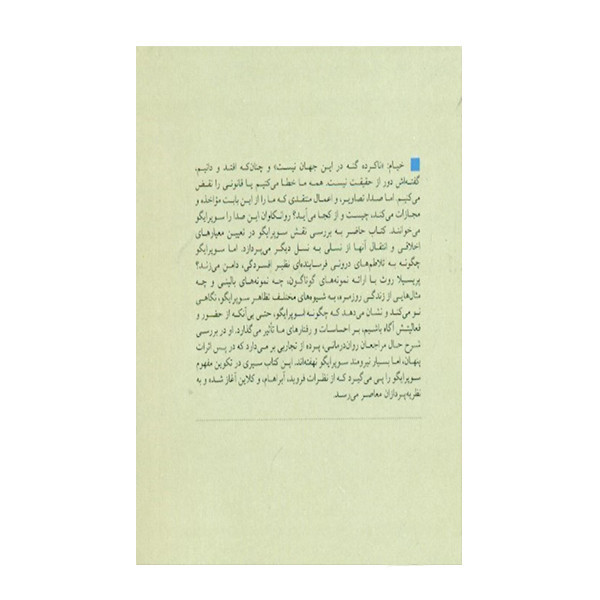 خیام: «ناکرده گنه در این جهان نیست» و چنان‌که افتد و دانیم،
گفته‌اش دور از حقیقت نیست. همه ما خطا می‌کنیم یا قانونی را نقض
می‌کنیم. اما صدا، تصاویر، و اعمال منتقدی که ما را از این بابت مؤاخذه و
مجازات می‌کند، چیست و از کجا می‌آید؟ روانکاوان این صدا را سوپرایگو
می‌خوانند. کتاب حاضر به بررسی نقش سوپرایگو در تعیین معیارهای
اخلاقی و انتقال آنها از نسلی به نسل دیگر می‌پردازد. اما سوپرایگو
چگونه به تلاطم‌های درونی فرساینده‌ای نظیر افسردگی، دامن می‌زند؟
پریسیلا روث با ارائه نمونه‌های گوناگون، چه نمونه‌های بالینی و چه
مثال‌هایی از زندگی روزمره، به شیوه‌های مختلف تظاهر سوپرایگو، نگاهی
نو می‌کند و نشان می‌دهد که چگونه سوپرایگو، حتی بی‌آنکه از حضور و
فعالیتش آگاه باشیم، بر احساسات و رفتارهای ما تأثیر می‌گذارد. او در بررسی
شرح حال مراجعان روان‌درمانی، پرده از تجاربی بر می‌دارد که در پس اثرات
پنهان، اما بسیار نیرومند سوپرایگو نهفته‌اند. این کتاب سیری در تکوین مفهوم
سوپرایگو را پی می‌گیرد که از نظرات فروید، آبراهام، و کلاین آغاز شده و به
نظریه‌پردازان معاصر می‌رسد.